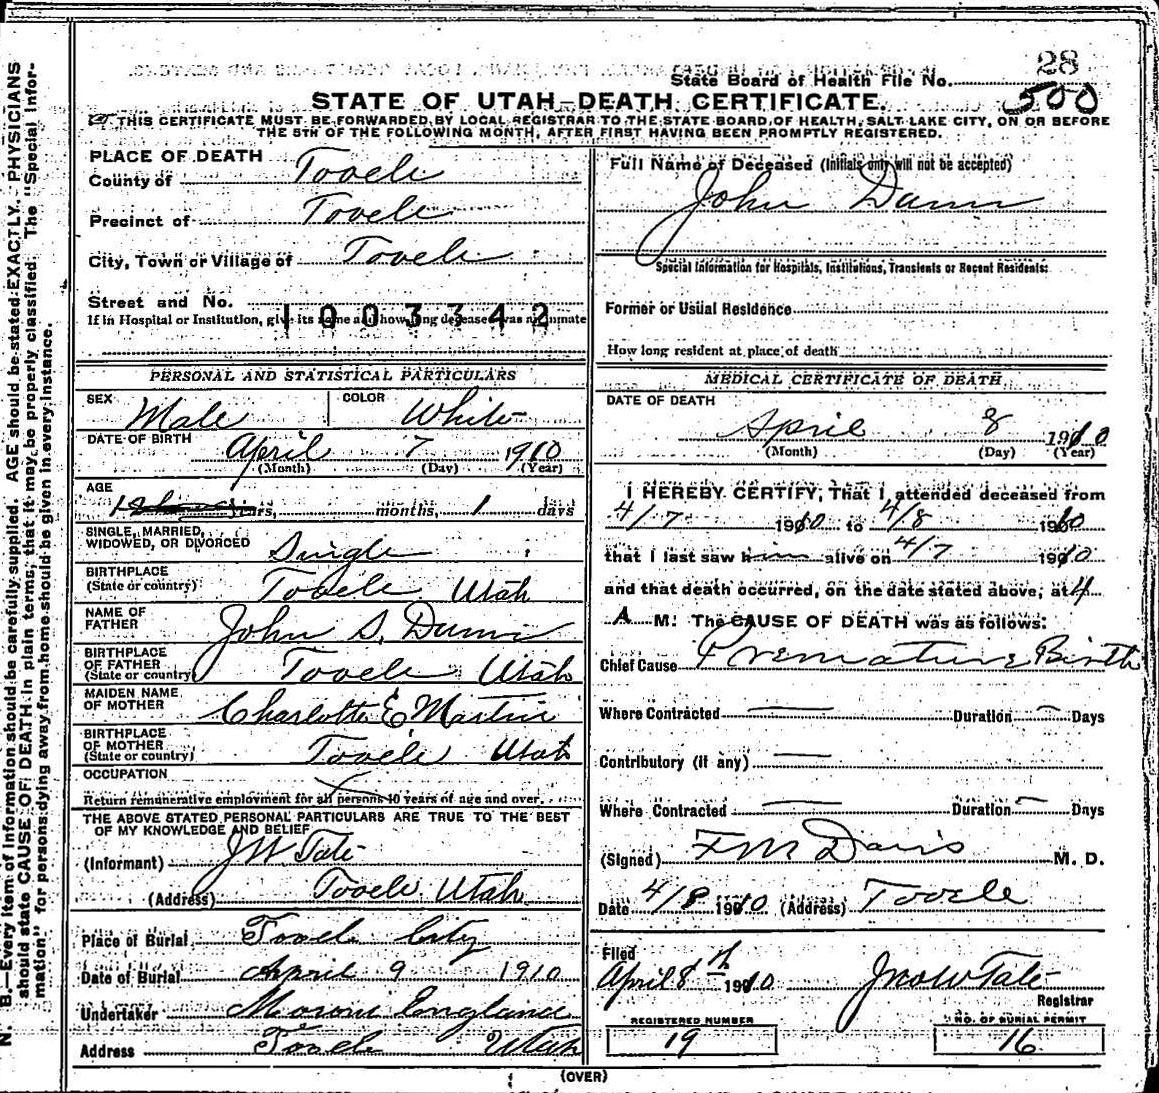 28
State Board of Health File No. 500
STATE OF UTAH—DEATH CERTIFICATE.
THIS CERTIFICATE MUST BE FORWARDED BY LOCAL REGISTRAR TO THE STATE BOARD OF HEALTH, SALT LAKE CITY, ON OR BEFORE
THE 5TH OF THE FOLLOWING MONTH, AFTER FIRST HAVING BEEN PROMPTLY REGISTERED.
N. B.—Every item of information should be carefully supplied. AGE should be stated EXACTLY. PHYSICIANS
should state CAUSE OF DEATH in plain terms, that it may be properly classified. The "Special Infor-
mation" for persons dying away from home should be given in every instance.
PLACE OF DEATH
County of Tooele
Precinct of Tooele
City, Town or Village of Tooele
Street and No.
1003342
If in Hospital or Institution, give its name and how long deceased was an inmate
PERSONAL AND STATISTICAL PARTICULARS
SEX Male COLOR White
DATE OF BIRTH April 7 1910
(Month) (Day) (Year)
AGE
years, months, 1 days
SINGLE, MARRIED,
WIDOWED, OR DIVORCED Single
BIRTHPLACE
(State or country) Tooele Utah
NAME OF
FATHER John S. Dunn
BIRTHPLACE
OF FATHER
(State or country) Tooele Utah
MAIDEN NAME
OF MOTHER Charlotte E Martin
BIRTHPLACE
OF MOTHER
(State or country) Tooele Utah
OCCUPATION
Return remunerative employment for all persons 10 years of age and over.
THE ABOVE STATED PERSONAL PARTICULARS ARE TRUE TO THE BEST
OF MY KNOWLEDGE AND BELIEF
(Informant) J W Tate
(Address) Tooele Utah
Place of Burial Tooele City
Date of Burial April 9 1910
Undertaker Moroni England
Address Tooele Utah
Full Name of Deceased (Initials only will not be accepted)
John Dunn
Special Information for Hospitals, Institutions, Transients or Recent Residents:
Former or Usual Residence
How long resident at place of death
MEDICAL CERTIFICATE OF DEATH
DATE OF DEATH
April 8 1910
(Month) (Day) (Year)
I HEREBY CERTIFY, That I attended deceased from
4/7 1910 to 4/8 1910
that I last saw him alive on 4/7 1910
and that death occurred, on the date stated above, at 4
A M. The CAUSE OF DEATH was as follows:
Chief Cause Premature Birth
Where Contracted — Duration — Days
Contributory (if any) —
Where Contracted — Duration — Days
(Signed) F M Davis M. D.
Date 4/8 1910 (Address) Tooele
Filed
April 8th 1910 Jno W Tate
Registrar
REGISTERED NUMBER
19
NO. OF BURIAL PERMIT
16
(OVER)